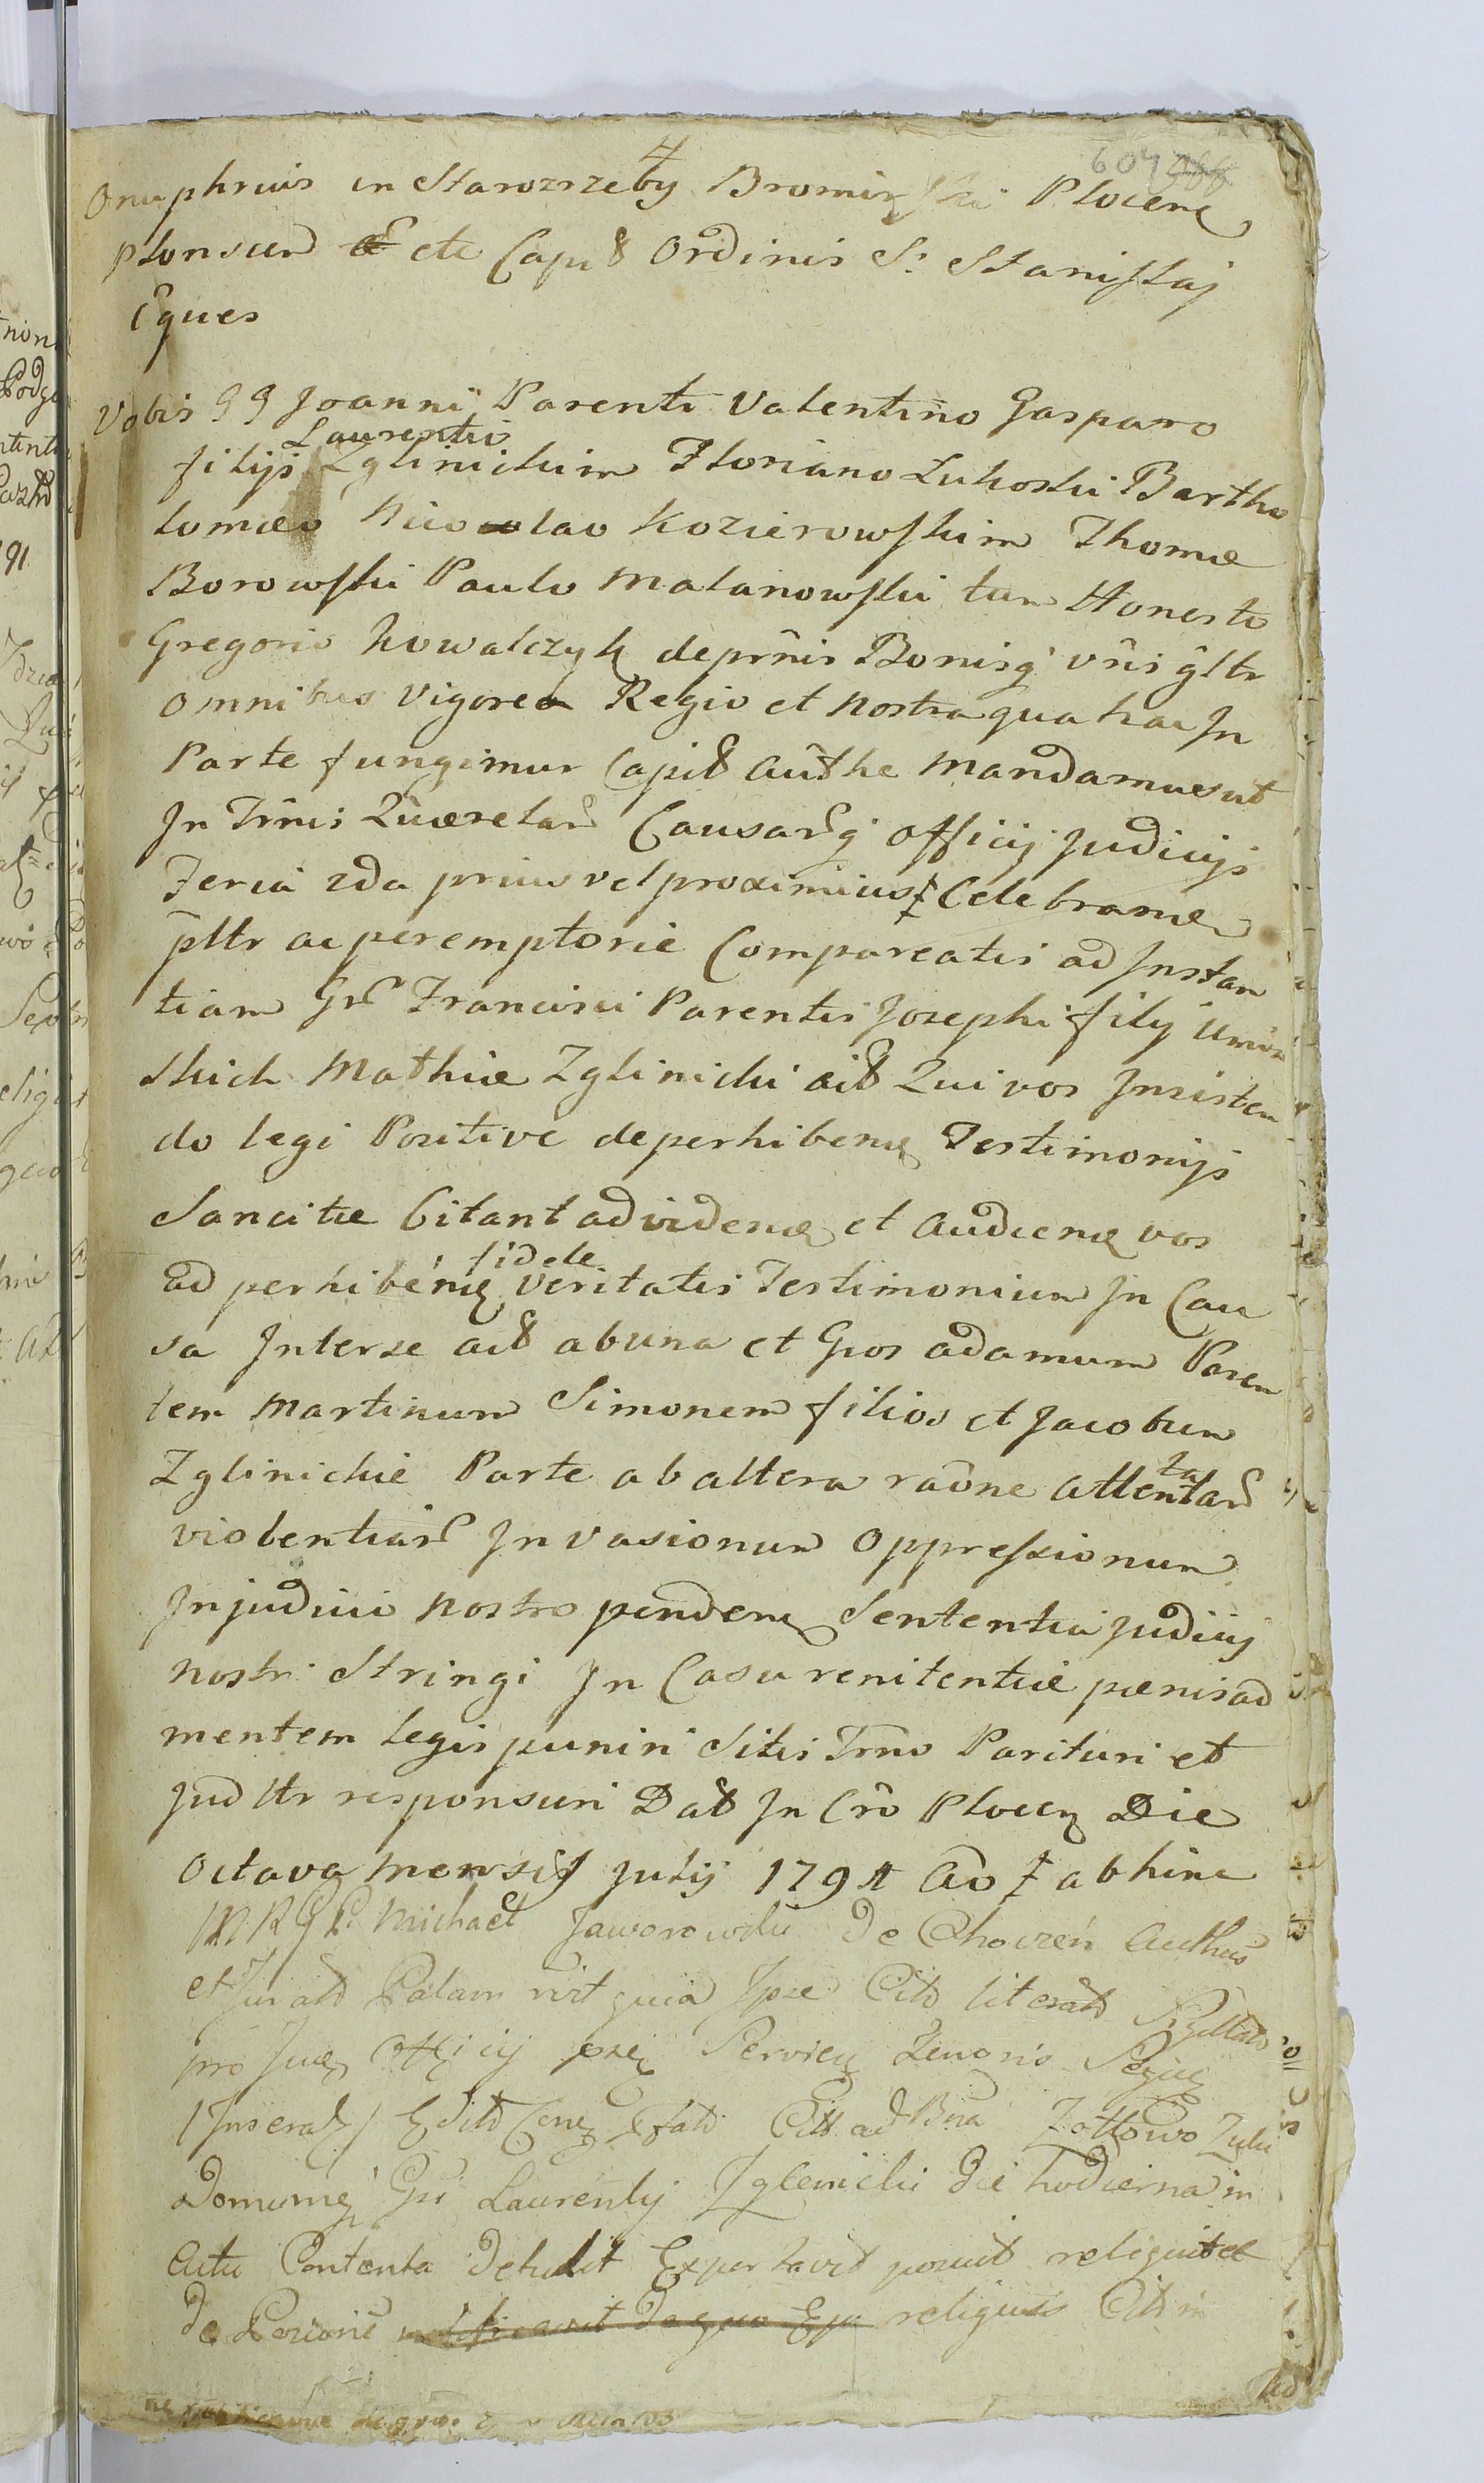 4
604
Onuphrius in Starozrzeby Bromirski Plocen
plonscen & etc Capit Ordinis S: Stanislaj
Eques
Vobis GG Joanni Parenti Valentino Gasparo
Laurentio
filijs Zglinickim Floriano Lukoski Bartho
lomæo Nicolao Kozierowskim Thomæ
Borowski Paulo Malanowski tum Honesto
Gregorio Kowalczyk deprñis Bonisq vñis gltr
omnibus vigorea Regio et nostra qua hac Jn
Parte fungimur Capit Authe Mandamus ut
Jn Trñis Querelar Causarq officij judicijs
Feria 2da prius vel proximius Celebran
pltr ac peremptorie Compareatis ad Jnstan
tiam Gr Francisci Parentis Josephi filij Umin
skich Mathiæ Zglinicki act Qui vos Jnsisten
do legi Positive deperhiben Testimonijs
Sancitæ Citant ad viden et Audien vos
fidele
ad perhiben Veritatis Testimonium Jn Cau
sa Jnterse act abuna et Gros Adamum Paren
tem Martinum Simonem filios et Jacobum
Zglinickie Parte ab altera raone Attentatar
violentiar Jnvasionum Oppressionum
Jnjudicio nostro penden Sententia judicij
nostri Stringi Jn Casu renitentiæ pænis ad
mentem legis puniri Sitis Trno Parituri et
jud ltr responsuri Dat Jn Cro Plocen Die
Octava mensis Julij 1791 Ao abhinc
MRGP Michael Jaworowski de Chorzeń Authus
et Jurat Palam rirt quia Jpse Citt literat Sigillat
pro officij
Jnserat Edit Citt ad Bna Zottowo
Domumq Gsi Laurentij Zglenicki die hodierna in
Actu Contenta detulit Exportavit posuit reliquitet
de Positione reliquis Citt in